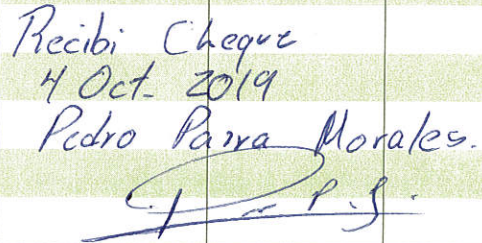 Recibi Cheque
4 Oct. 2019
Pedro Parra Morales.